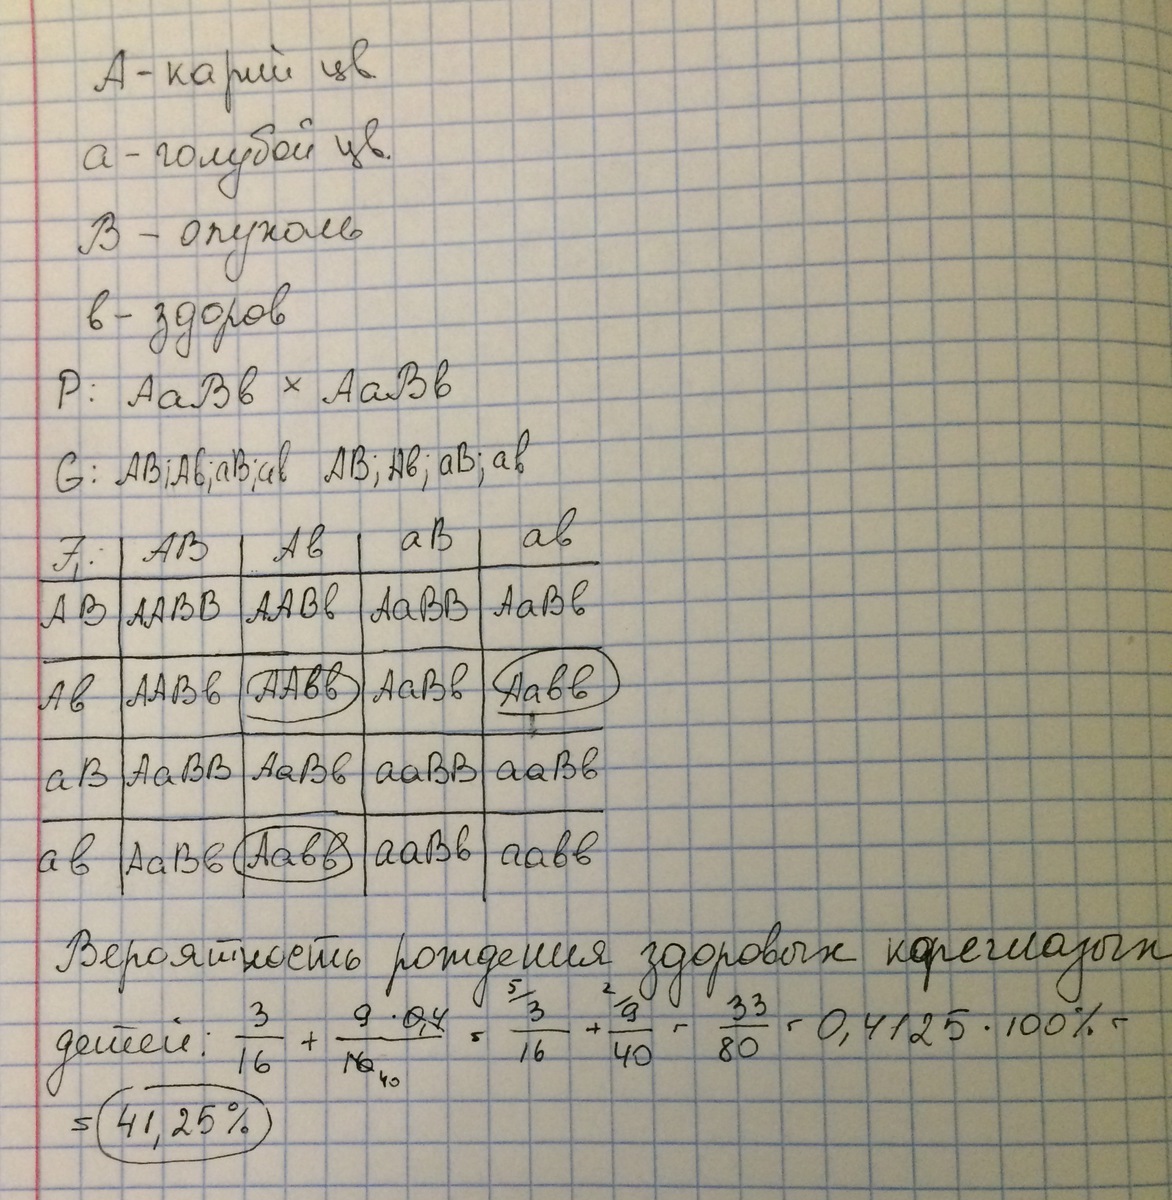 А - карий цв
а - голубой цв.
В - опухоль
в - здоров
Р: АаВв × АаВв
G: АВ; Ав; аВ; ав АВ; Ав; аВ; ав
F₁: АВ Ав аВ ав
АВ ААВВ ААВв АаВВ АаВв
Ав ААВв ААвв АаВв Аавв
аВ АаВВ АаВв ааВВ ааВв
ав АаВв Аавв ааВв аавв
Вероятность рождения здоровых кареглазых
детей: 3/16 + 9 · 0,4/16 40 = 5/ 3/16 + 2/ 9/40 = 33/80 = 0,4125 · 100% =
= 41,25%